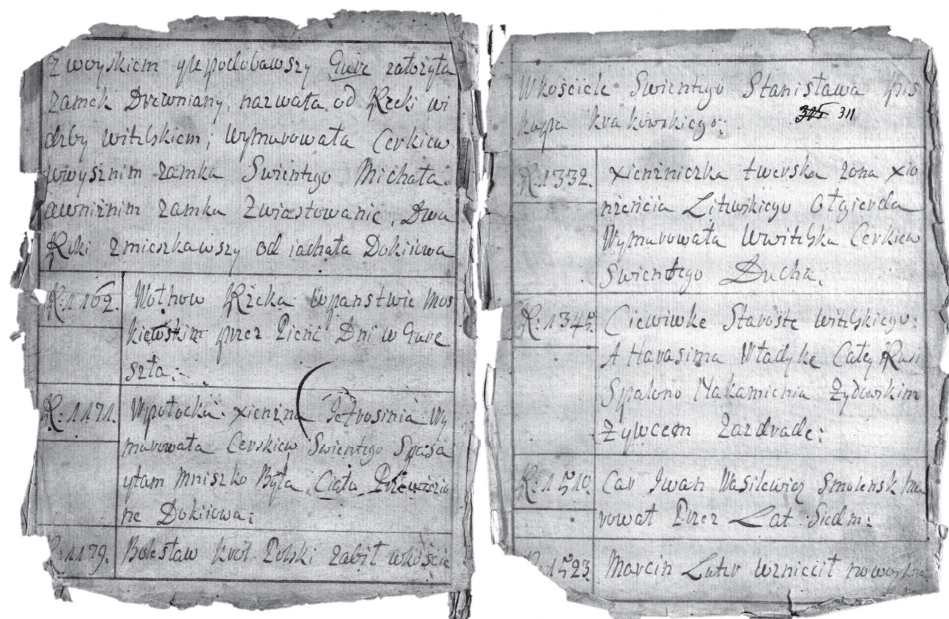 z woyskiem ypepodobawszy Gure załozyła
zamek Drewniany, nazwała od Rzeki wi
dzby witebskiem; Wymurowała Cerkiew
wwysznim zamku Swientego Michała
awniznim zamku Zwiastowanie, Dwa
Roki zmieszkawszy od iachała Dokiiowa
R: 1162. Wołhow Rzeka wpanstwie Mos
kiewskim przez Pienc Dni w Gure
szła:
R: 1171. Wpołocku xienżna Wy
murowała Cerkiew Swientego Spasa
ytam Mniszko Była, Ciało
ne Dokiiowa:
R: 1179. Bolesław krol Polski zabił wkoscie
Wkościele Swientego Stanisława Bis
kupa krakowskiego:
311
R: 1332. xienzniczka twerska zona xio
nzencia Litewskiego Olgierda
Wymurowała Wwitebsku Cerkiew
Swientego Ducha.
R: 1345. Ciewiwke Staroste witebskiego:
A Harasima Władyke Całey Rusi
Spalono Nakamieniu Zydowskim
Zywcem Zazdrade:
R: 1510. Car Iwan Wasilewicz Smolensk mu
rował Przez Lat Siedm:
R: 1523. Marcin Luter wzniecił